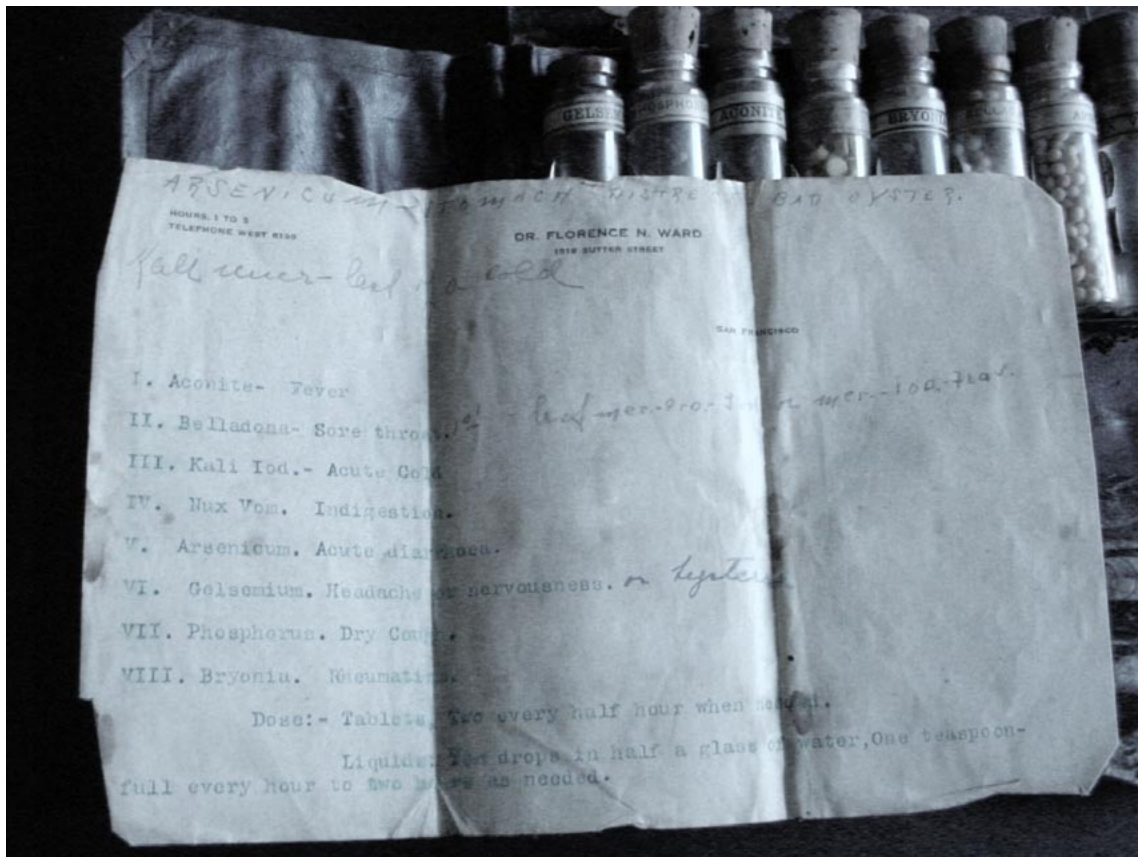 GELSEM
PHOSPHO
ACONITE
BRYON
ARSENICUM - STOMACH DISTRE BAD OYSTER.
HOURS, 1 TO 3
TELEPHONE WEST
DR. FLORENCE N. WARD
SUTTER STREET
a cold
SAN FRANCISCO
I. Aconite- Fever
II. Belladona- Sore throat.
III. Kali Iod.- Acute Cold
IV. Nux Vom. Indigestion.
V. Arsenicum. Acute diarrhoea.
VI. Gelsemium. Headache or nervousness. or hysteria
VII. Phosphorus. Dry Cough.
VIII. Bryonia. Rheumatism.
Dose:- Tablets, Two every half hour when
Liquids: Ten drops in half a glass of water,One teaspoon-
full every hour to two hours as needed.